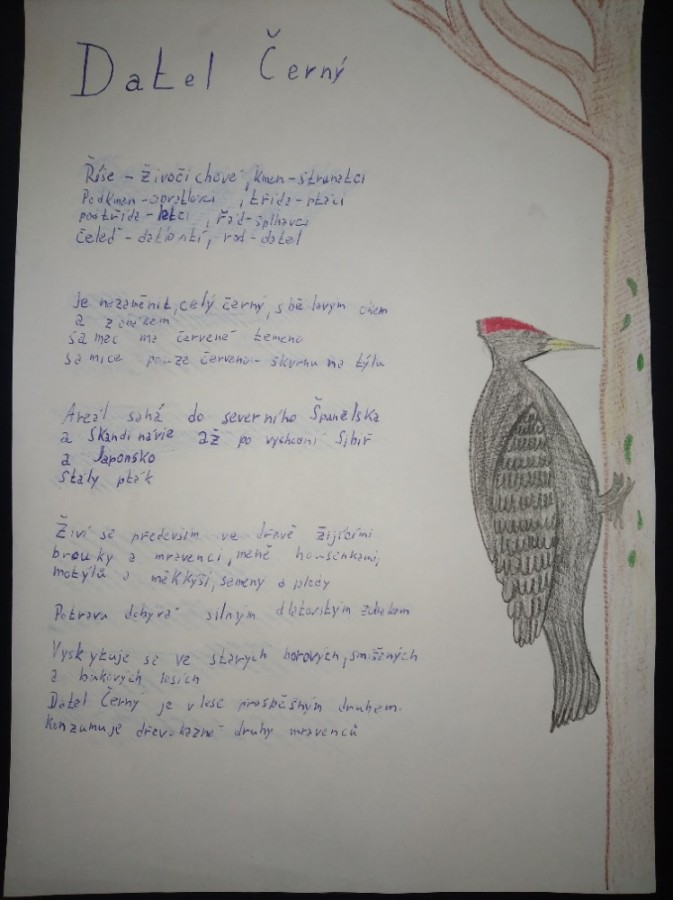 Datel Černý
Říše - živočichové, kmen - strunatci
Podkmen - obratlovci, třída - ptáci
podtřída - letci, řád - šplhavci
čeleď - datlovití, rod - datel
je nezaměnit, celý černý, s bělavým okem
a zobákem
samec má červené temeno
samice pouze červenou skvrnu na týlu
Areál sahá do severního Španělska
a Skandinávie až po východní Sibiř
a Japonsko
Stálý pták
Živí se především ve dřevě žijícími
brouky a mravenci, méně housenkami,
motýlů a měkkýši, semeny a plody
Potravu dobývá silným dlátovským zobákem
Vyskytuje se ve starých borových, smíšených
a bukových lesích
Datel Černý je v lese prospěšným druhem.
Konzumuje dřevokazné druhy mravenců